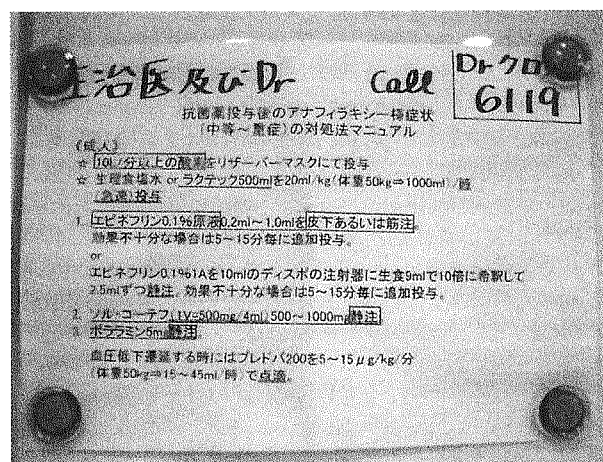 主治医及びDr Call
Drクロ
6119
抗菌薬投与後のアナフィラキシー様症状
(中等~重症)の対処法マニュアル
《成人》
☆ 10l/分以上の酸素をリザーバーマスクにて投与
☆ 生理食塩水 or ラクテック500mlを20ml/kg(体重50kg⇒1000ml)/
(急速)投与
1. エピネフリン0.1%原液0.2ml~1.0mlを皮下あるいは筋注。
効果不十分な場合は5~15分毎に追加投与。
or
エピネフリン0.1%1Aを10mlのディスポの注射器に生食9mlで10倍に希釈して
2.5mlずつ静注。効果不十分な場合は5~15分毎に追加投与。
2. ソル・コーテフ(1V=500mg/4ml)500~1000mg静注
3. ポララミン5mg静注。
血圧低下遷延する時にはプレドパ200を5~15μg/kg/分
(体重50kg⇒15~45ml/時)で点滴。